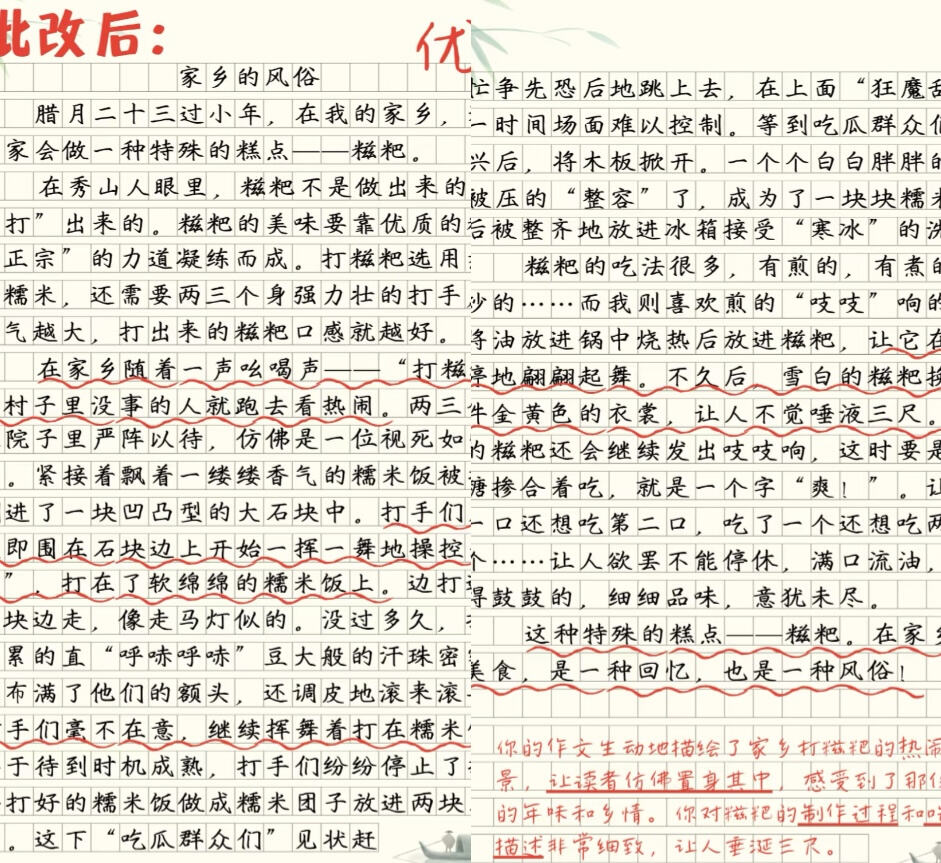 批改后：
优
家乡的风俗
腊月二十三过小年，在我的家乡，
家会做一种特殊的糕点——糍粑。
在秀山人眼里，糍粑不是做出来的
打”出来的。糍粑的美味要靠优质的
正宗”的力道凝练而成。打糍粑选用
糯米，还需要两三个身强力壮的打手
气越大，打出来的糍粑口感就越好。
在家乡随着一声吆喝声——“打糍
村子里没事的人就跑去看热闹。两三
院子里严阵以待，仿佛是一位视死如
。紧接着飘着一缕缕香气的糯米饭被
进了一块凹凸型的大石块中。打手们
即围在石块边上开始一挥一舞地操控
”，打在了软绵绵的糯米饭上。边打
块边走，像走马灯似的。没过多久，
累的直“呼哧呼哧”豆大般的汗珠密
布满了他们的额头，还调皮地滚来滚
手们毫不在意，继续挥舞着打在糯米
于待到时机成熟，打手们纷纷停止了
打好的糯米饭做成糯米团子放进两块
。这下“吃瓜群众们”见状赶
忙争先恐后地跳上去，在上面“狂魔乱
一时间场面难以控制。等到吃瓜群众们
兴后，将木板掀开。一个个白白胖胖的
被压的“整容”了，成为了一块块糯米
后被整齐地放进冰箱接受“寒冰”的洗
糍粑的吃法很多，有煎的，有煮的
炒的……而我则喜欢煎的“吱吱”响的
将油放进锅中烧热后放进糍粑，让它在
停地翩翩起舞。不久后，雪白的糍粑换
件金黄色的衣裳，让人不觉唾液三尺。
的糍粑还会继续发出吱吱响，这时要是
糖掺合着吃，就是一个字“爽！”。让
一口还想吃第二口，吃了一个还想吃两
个……让人欲罢不能停休，满口流油，
得鼓鼓的，细细品味，意犹未尽。
这种特殊的糕点——糍粑。在家乡
美食，是一种回忆，也是一种风俗！
你的作文生动地描绘了家乡打糍粑的热闹
景，让读者仿佛置身其中，感受到了那份
的年味和乡情。你对糍粑的制作过程和吃
描述非常细致，让人垂涎三尺。